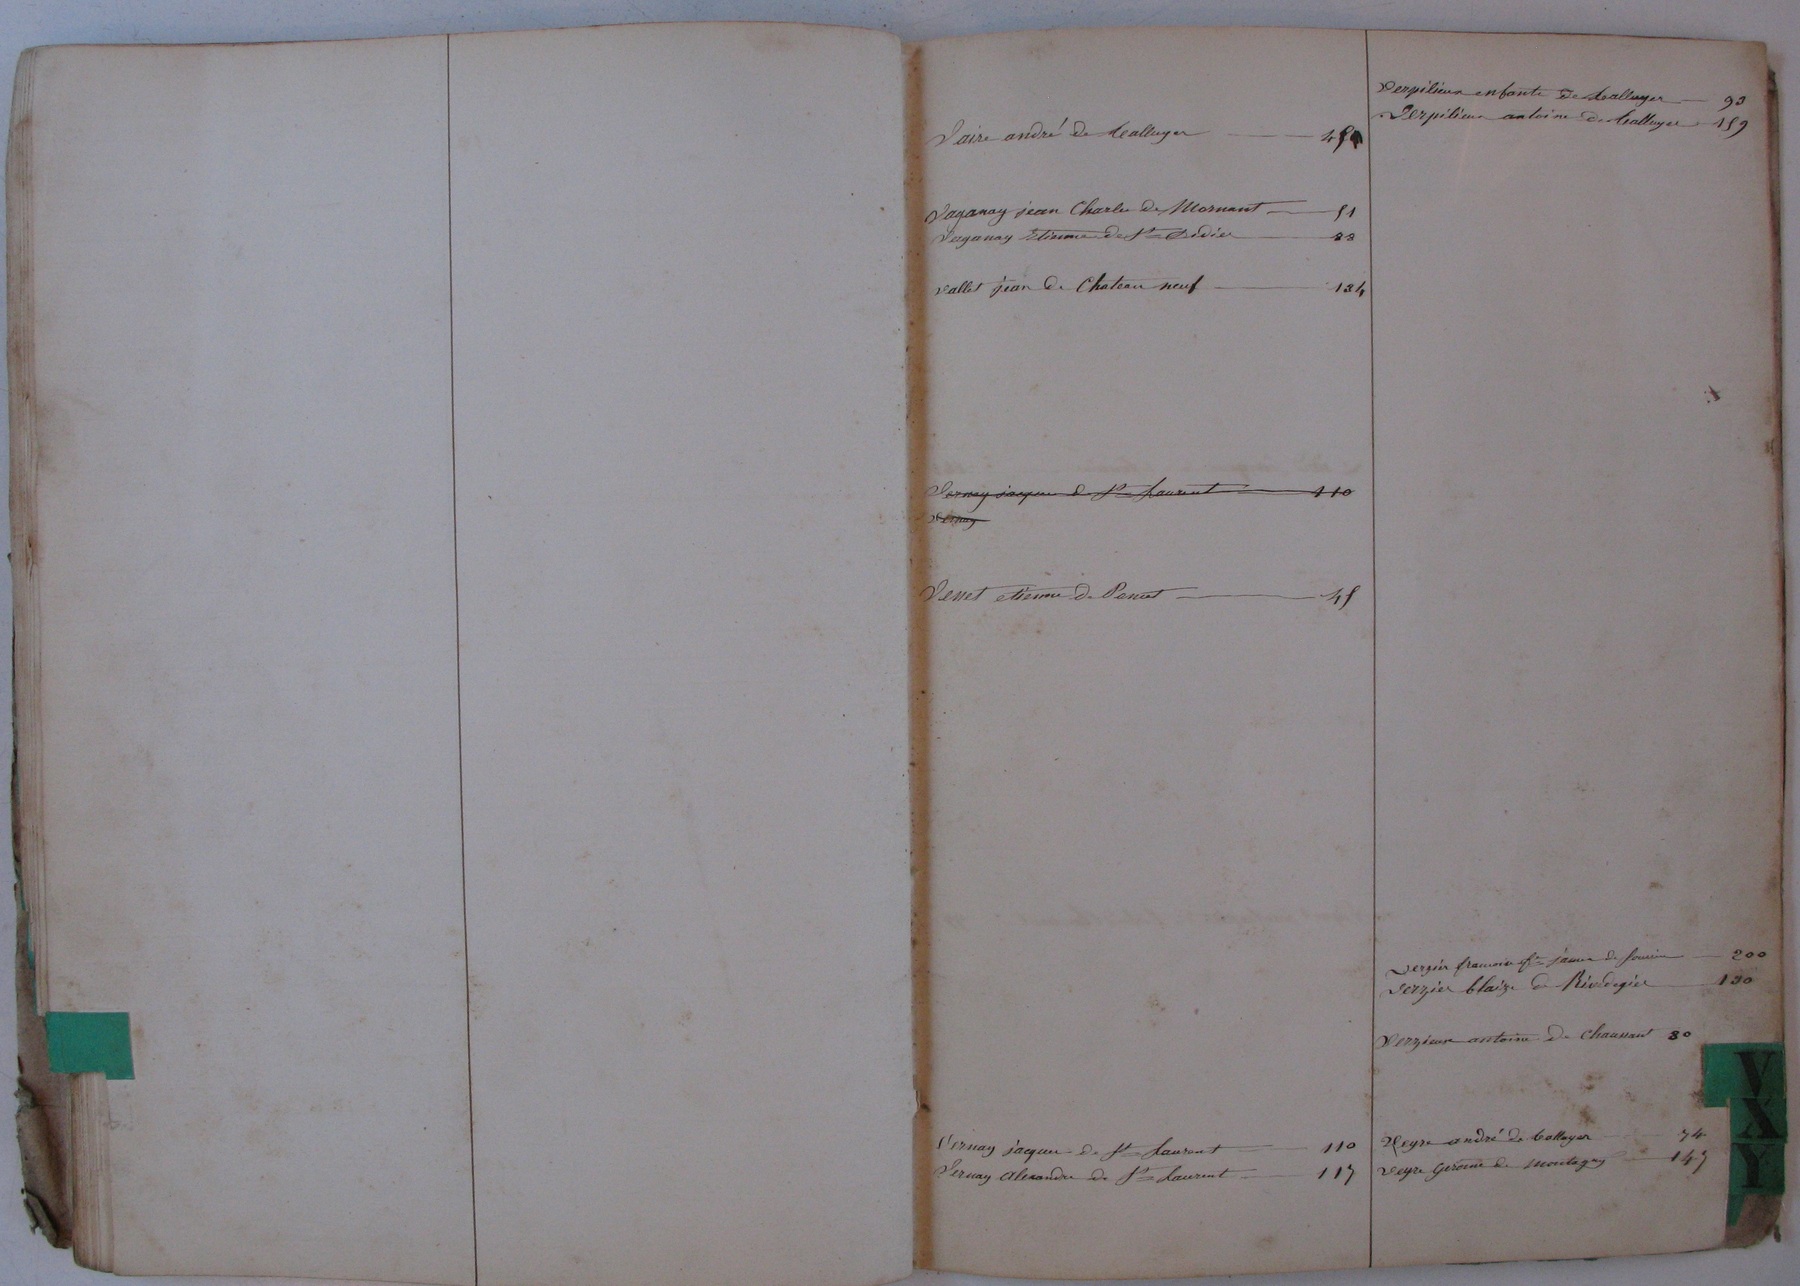 Vaire andré de taluyer
Vaganay jean Charle de Mornant 51
Vaganay Etienne de St Didier 33
Vallet jean de Chateau neuf 134
Vernay jacque de St Laurent 110
Vernay
etienne de 45
Vernay jacque de St Laurent 110
Vernay Alexandre de St Laurent 117
Verpilieux enfants de talluyer 93
Verpilieux antoine de talluyer 159
Verzier de 200
Verzier blaize de Rivedegier 130
Verzieux antoine de Chaussant 80
Veyre andré de talluyer 74
Veyre de Montagny 147
V
X
Y